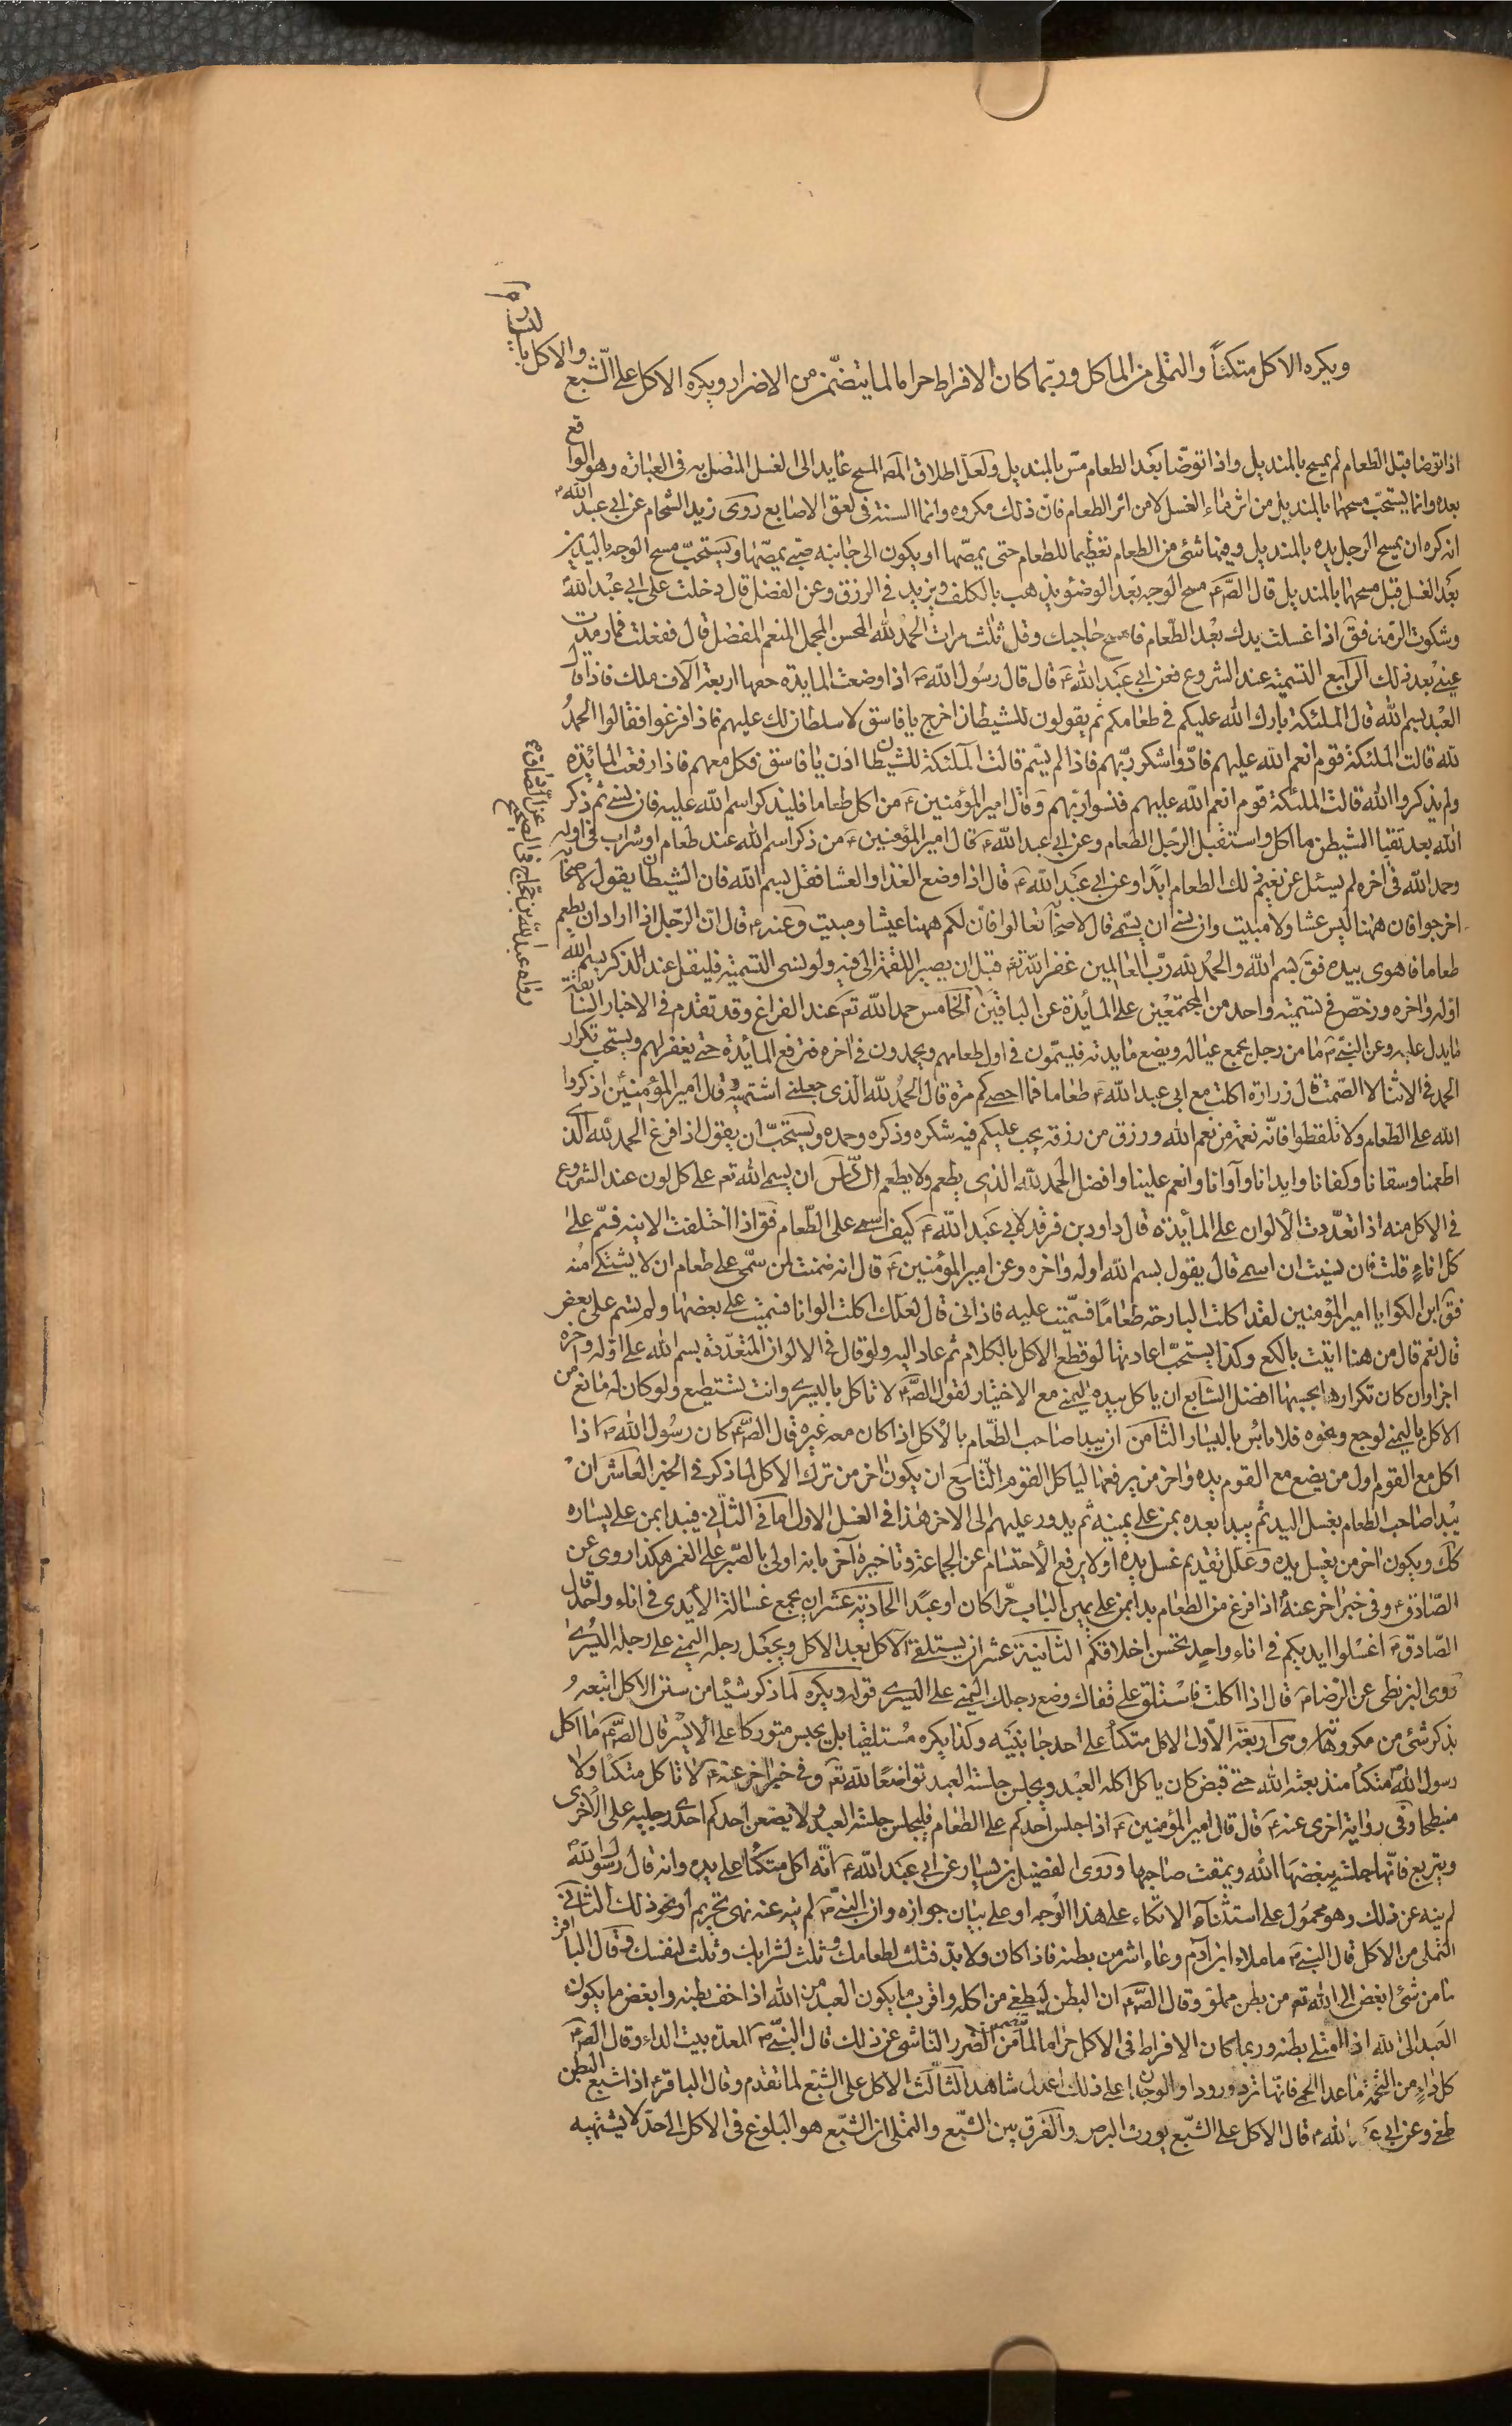 ويكره الاكل متكئاً والتملى من الماكل وربّما كان الافراط حراما لما يتضمّن من الاضرار ويكره الاكل على الشّبع والاكل باليسار
اذا توضا قبل الطعام لم يمسح بالمنديل واذا توضّا بعد الطعام مسّ بالمنديل ولعلّ اطلاق المصَ المسح عايد الى الغسل المتصل به فى العبارة وهو الواقع
بعده وانما يستحبّ مسحها بالمنديل من اثر ماء الغسل لا من اثر الطعام فانّ ذلك مكروه وانما السنة فى لعق الاصابع روى زيد الشحام عن ابى عبد اللهؑ
انه كره ان يمسح الرجل يده بالمنديل وفيها شئ من الطعام تعظيما للطعام حتى يمصّها او يكون الى جانبه صبى يمصّها ويستحبّ مسح الوجه باليدين
بعد الغسل قبل مسحها بالمنديل قال الصّ عَ مسح الوجه بعد الوضؤ يذهب بالكلف ويزيد فى الرزق وعن المفضل قال دخلت على ابى عبد اللهؑ
وشكوت الرمد فقَ اذا غسلت يدك بعد الطّعام فامسح حاجبيك وقل ثلث مرات الحمد لله المحسن المجمل المنعم المفضل قال ففعلت فما رمدت
عينى بعد ذلك الرّابع التسمية عند الشروع فعن ابى عبد الله عَ قال قال رسُول الله صَ اذا وضعت المايدة حفها اربعة آلاف ملك فاذا قال
العبد بسم الله قال الملئكة بارك الله عليكم فى طعامكم ثم يقولون للشيطان اخرج يا فاسق لا سلطان لك عليهم فاذا فرغوا فقالوا الحمدُ
لله قالت الملئكة قوم انعم الله عليهم فادّوا شكر ربّهم فاذا لم يسّم قالت الملئكة للشيطان ادن يا فاسق فكل معهم فاذا رفعت المائدة
ولم يذكروا الله قالت الملئكة قوم انعم الله عليهم فنسوا ربّهم وقال امير المؤمنين عَ من اكل طعاما فليذكر اسم الله عليه فان نسى ثم ذكر
الله بعد تقيّا الشيطن ما اكل واستقبل الرّجل الطعام وعن ابى عبد الله عَ قال امير المؤمنين عَ من ذكر اسم الله عند طعام او شراب فى اوله
وحمد الله فى اخره لم يسئل عن نعيم ذلك الطعام ابدًا وعن ابى عبَد الله عَ قال اذا وضع الغذا والعشا فقل بسم الله فان الشيطان يقول لاصحابه
اخرجوا فان ههنا ليس عشا ولا مبيت وان نسى ان يسّمى قال لاصحابه تعالوا فانّ لكم ههنا عيشا ومبيت وعنه عَ قال انّ الرّجل اذا اراد ان يطعم
طعاما فاهوى بيده فقَ بسم الله والحمُد لله ربّ العالمين غفر الله له قبل ان يصير اللقمة الى فيه ولو نسى التسمية فليقل عند الذكر بسم الله
اوله واخره ورخصّ فى تسمية واحد من المجتمعين على المائدة عن الباقين الخامس حمد الله تعَ عند الفراغ وقد تقدم فى الاخبار السابقة
ما يدل عليه وعن النبى صَ ما من رجل يجمع عياله ويضع مايدته فليسمّون فى اول طعامهم ويحمدون فى اخره فترفع المائدة حتى يغفر لهم ويستحب تكرار
الحمد فى الاثنا لا الصّمت قال زرارة اكلت مع ابى عبد الله عَ طعاما فما احصى كم مرة قال الحمُد لله الذى جعلنى اشتهيه وقال امير المؤمنين اذكروا
الله على الطّعام ولا تلفظوا فانّه نعمة من نعم الله ورزق من رزقه يجب عليكم فيه شكره وذكره وحمده ويستحبّ ان يقول اذا فرغ الحمد لله الذى
اطعمنا وسقانا وكفانا وايدانا وآوانا وانعم علينا وافضل الحمد لله الذى يطعم ولا يطعم السّادس ان يسمى الله تعَ على كل لون عند الشروع
فى الاكل منه اذا تعدّدت الألوان على المائدة قال داود بن فرقد لابى عَبد الله عَ كيف اسمى على الطّعام فقَ اذا اختلفت الانية فسّم على
كل اناءٍ قلت فان نسيت ان اسمى قال يقول بسم الله اوله واخره وعن امير المؤمنين عَ قال انه ضمنت لمن سمّى على طعام ان لا يشتكى منه
فقَ ابن الكوا يا امير المؤمنين لقد اكلت البارحة طعامًا فسمّيت عليه فاذانى قال لعلّك اكلت الوانا فسمّيت على بعضها ولم تسّم على بعض
قال نعم قال من هنا اتيت يا لكع وكذا يستحبّ اعادتها لو قطع الاكل بالكلام ثم عاد اليه ولو قال فى الالوان المتعدّدة بسم الله على اوّله واخره
اجزا وان كان تكرارها بحسبها افضل السّابع ان ياكل بيده اليمنى مع الاختيار لقول الصّ عَ لا تاكل باليسرى وانت تستطيع ولو كان له مانع من
الاكل باليمنى لوجع ونحوه فلا باس باليسار الثامن ان يبدا صاحب الطّعام بالأكل اذا كان معه غيره قال الصّ عَ كان رسُول الله صَ اذا
اكل مع القوم اول من يضع مع القوم يده واخر من يرفعها لياكل القوم التّاسع ان يكون اخر من ترك الاكل لما ذكر فى الخبر العاشر ان
يبدا صاحب الطعام بغسل اليد ثم يبدا بعده بمن على يمينه ثم يدور عليهم الى الاخر هذا فى الغسل الاول اما فى الثّانى فيبدا بمن على يساره
كك ويكون اخر من يغسل يده وعلّل تقديم غسل يده اولا برفع الأحتشام عن الجماعة وتاخيره آخرا بانه اولى بالصّبر على الغمر هكذا روى عن
الصّادق عَ وفى خبر اخر عنهؑ اذا فرغ من الطعام بدا بمن على يمين الباب حّرا كان او عبدًا الحادية عشر ان يجمع غسالة الأيدى فى اناء واحد قال
الصّادق عَ اغسْلوا ايديكم فى اناء واحدٍ تحسن اخلاقكم الثانية عشر ان يستلقى الآكل بعد الاكل ويجعَل رجله اليمنى على رجله اليُسرى
روى البزنطى عن الرّضا عَ قال اذا اكلت فاسْتلق على قفاك وضع رجلك اليمنى على اليسرى قوله ويكره لما ذكر شيئا من سنن الاكل اتبعهُ
بذكر شئ من مكروهاته وهى اربعة الاّول الاكل متكئاً على احد جانبيه وكذا يكره مُستلقيا بل يجلس متوركا على الأيسْر قال الصّ عَ ما اكل
رسول الله متكئا منذ بعثه الله حتى قبض كان ياكل اكله العبْد ويجلس جلسة العبد تواضعًا لله تعَ وفى خبر اخر عنه عَ لا تاكل متكئا ولا
منبطحا وفى رواية اخرى عنه عَ قال قال امير المؤمنين عَ اذا جلس احدكم على الطعام فليجلس جلسة العبد ولا يضعن احدكم احدى رجليه على الاخرى
ويتربع فانّها جلسة يبغضها الله ويمقت صاحبها وروى الفضيل بن يسار عن ابى عبَد الله عَ انّه اكل متكئًا على يده وانه قال رسول الله
لم ينه عن ذلك وهو محمُول على استثناء الاتكاء على هذا الوجه او على بيان جوازه وان النبى صَ لم ينه عنه نهى تحريم او نحو ذلك الثانى
التملى من الاكل قال النبى صَ ما ملاء ابن آدم وعاء اشر من بطنه فاذا كان ولا بدّ فثلث لطعامك وثلث لشرابك وثلث لنفسك وقال الباقر
ما من شئ ابغض الى الله تعَ من بطن مملوّ وقال الصّ عَ ان البطن ليطغى من اكله واقرب ما يكون العبد من الله اذا خف بطنه وابغض ما يكون
العَبد الى الله اذا امتلى بطنه وربما كان الافراط فى الاكل حراما لما يتضمن من الضرر الناشى عن ذلك قال النبّى صَ المعدة بيت الداء وقال الصّ عَ
كل داءٍ من التخمة ما عدا الحمى فانّها ترد ورودا والوجدان على ذلك اعدل شاهد الثّالث الاكل على الشبع لما تقدم وقال الباقر عَ اذا شبع البطن
طغى وعن ابى عبد الله عَ قال الاكل على الشّبع يورث البرص والفرق بين الشّبع والتملى ان الشّبع هو البلوغ فى الاكل الى حدّ لا يشتهيه
رواه عبد الله بن حجاج فى الصحيح عن الصادق عَ